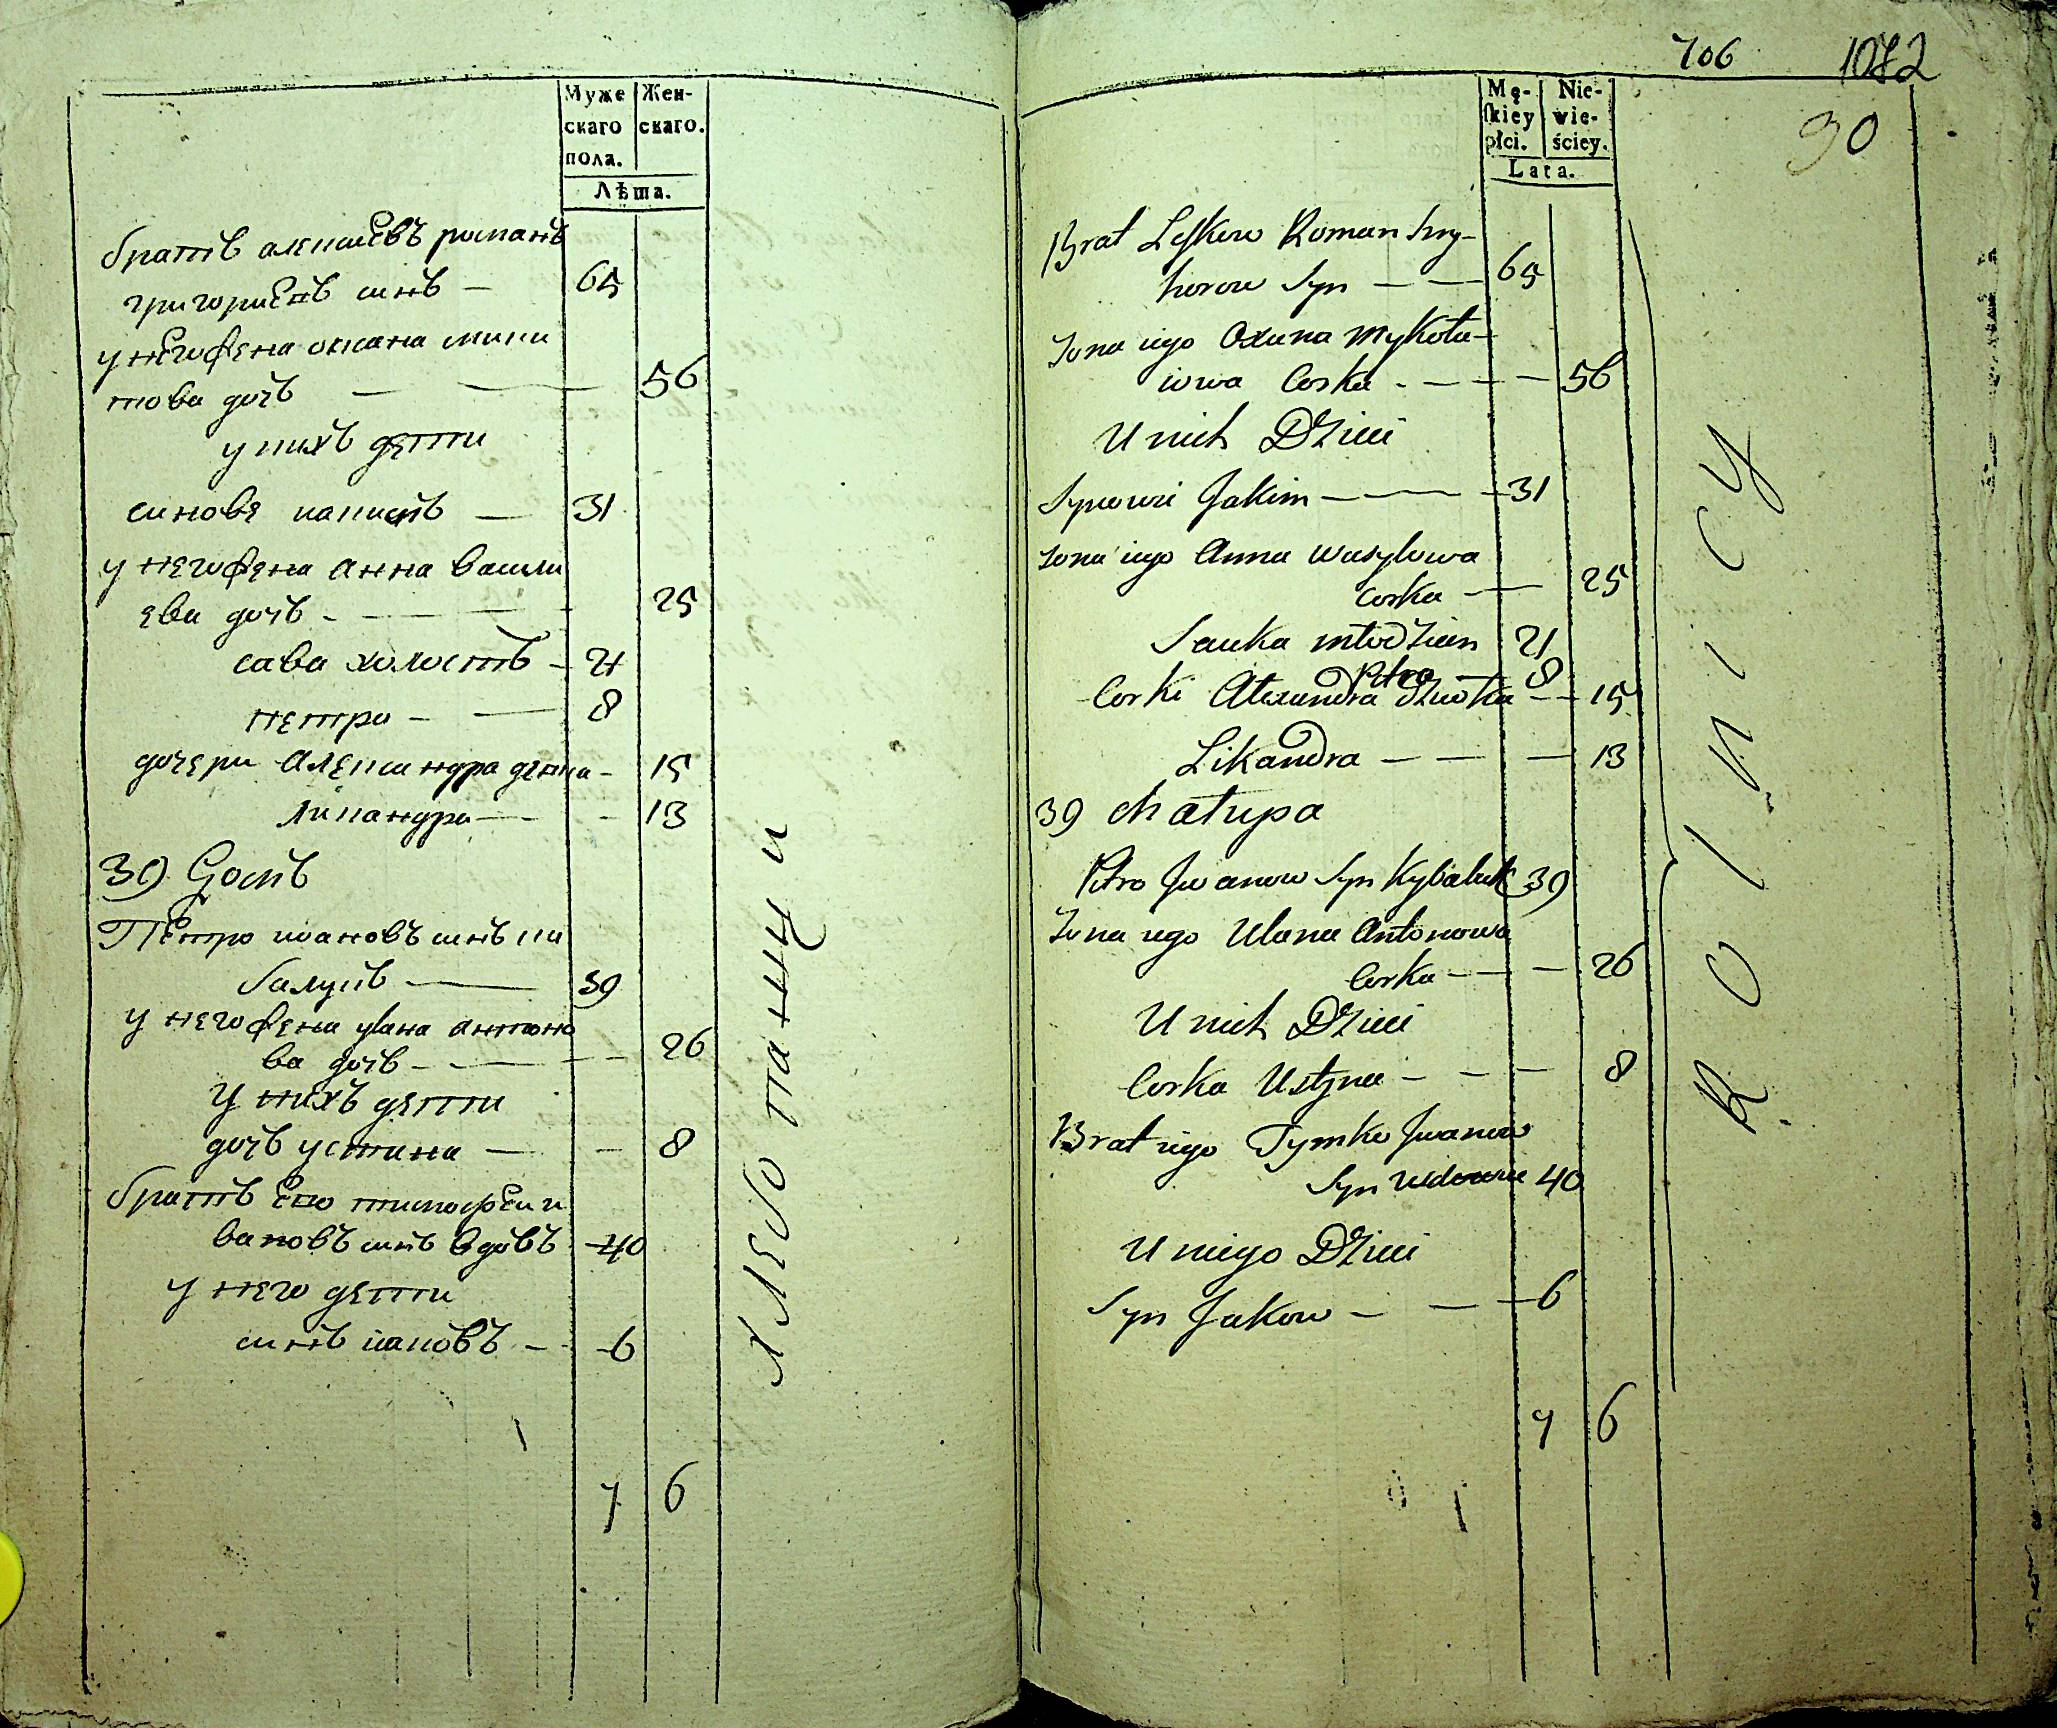 Муже
скаго
пола.
Жен-
скаго.
Лѣта.
братъ алексѣевъ романъ
григориевъ синъ — 65
у него жена оксана мики
това дочъ — 56
у нихъ дети
синовя иакимъ — 31
у него жена анна васили
ева дочъ - — 25
сава холостъ - 21
петро - — 8
дочери александра девка - 15
ликандра — - 13
39 Домъ
Петро ивановъ синъ ки
балукъ — 39
у него жена улана антоно
ва дочъ - — 26
у нихъ дети
дочъ устина — - 8
братъ его тимофеи и
вановъ синъ вдовъ - 40
у него дети
синъ иаковъ - - 6
7 6
хлебопашци
706 1072
90
Mę-
skiey
płci.
Nie-
wie-
ściey.
Lata.
Brat Leskow Roman Hry-
horow Syn — — 65
Zona iego Oxana Mykoła-
iowa Corka - — - — 56
U nich Dzieci
Synowie Jakim — — - 31
Zona iego Anna Wasylowa
Corka — 25
Sauka młodzien 21
Petro — 8
Corki Alexandra dziewka - — 15
Likandra — — — 13
39 Chałupa
Petro Jwanow Syn Kybaluk 39
Zona iego Ulana Antonowa
Corka — — 26
U nich Dzieci
Corka Ustyna - — — 8
Brat iego Tymko Jwanow
Syn wdowiec 40
U niego Dzieci
Syn Jakow - — - 6
7 6
ROLNICY